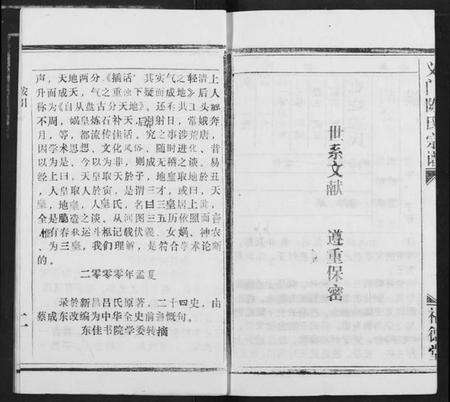 声，天地两分《插话》其实气之轻清上
升而成天，气之重浊下凝而成地》后人
称为《自从盘古分天地》。还有共工头
不周，娲皇炼石补天，羿射日，常娥奔
月，等，都流传佳话。究之事涉荒唐，
因学术思想、文化风俗，随时进化、昔
以为是，今以为非，则成无稽之谈。易
经上曰，天皇取天於子，地皇取地於丑
，人皇取人於寅，是谓三才，或曰，天
皇，地皇，人皇氏，名曰三皇居上
全是臆造之谈、从河图三五历依照而言
惟有春秋运斗枢记载伏羲、女娲、神农
、为三皇，我们理解，是符合学术论断
的。
二零零零年孟夏
录于新昌吕氏原著，二十四史，由
蔡成东改编为中华全史前言慨句。
东佳书院学委转摘
世系文献 遵重保密
义门陈氏宗谱